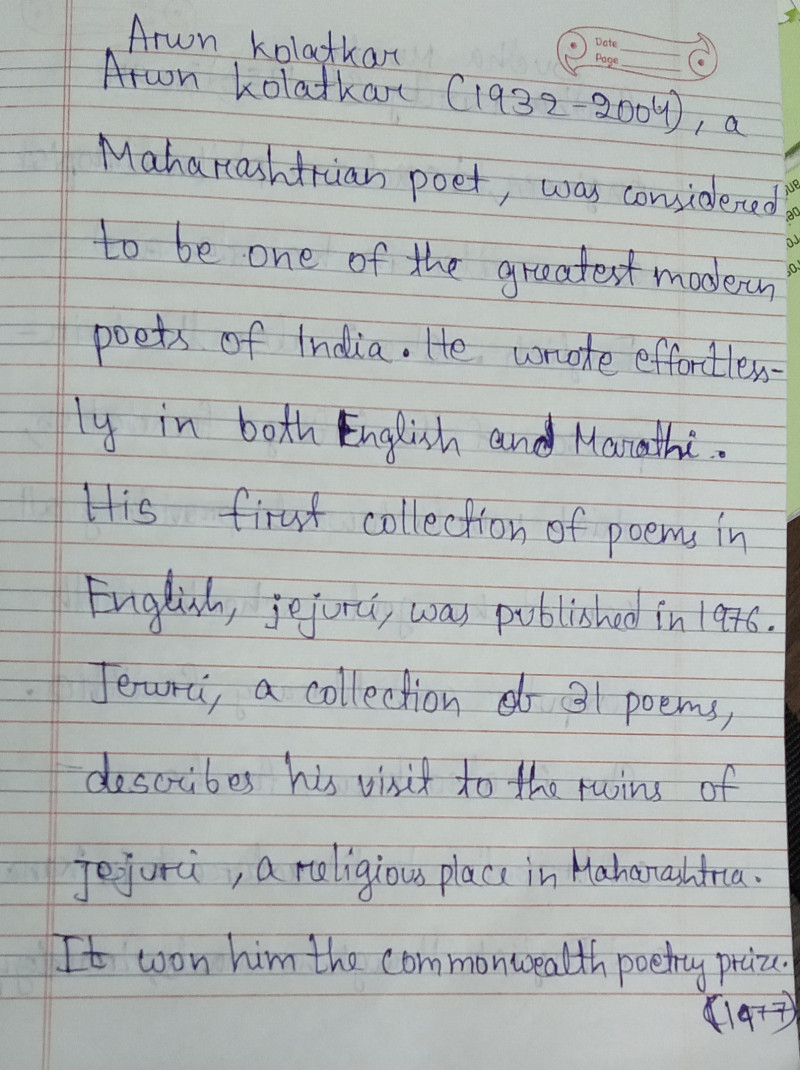 Arun kolatkar
Date
Page
Arun kolatkar (1932-2004), a
Maharashtrian poet, was considered
to be one of the greatest modern
poets of India. He wrote effortless-
ly in both English and Marathi.
His first collection of poems in
English, jejuri, was published in 1976.
Jewri, a collection of 31 poems,
describes his visit to the ruins of
jejuri, a religious place in Maharashtra.
It won him the commonwealth poetry prize.
(1977)